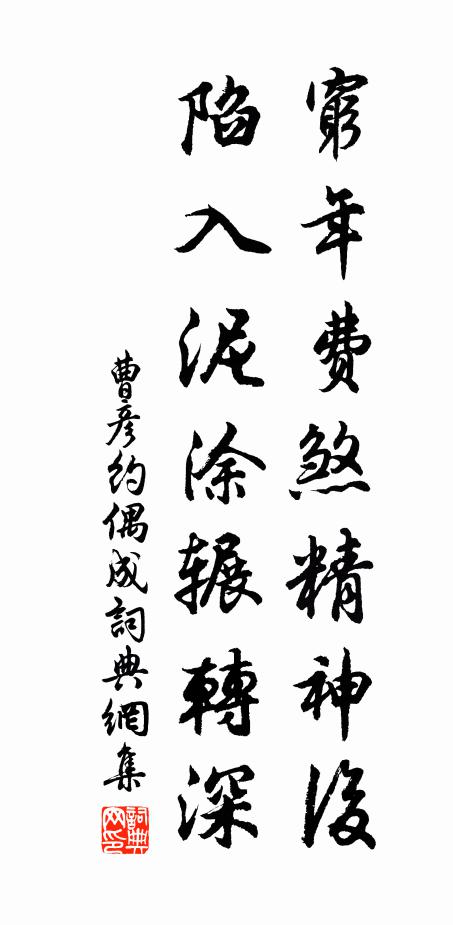 窮年費煞精神後
陷入泥涂辗轉深
曹彦約偶成詞典網集
詞典網印